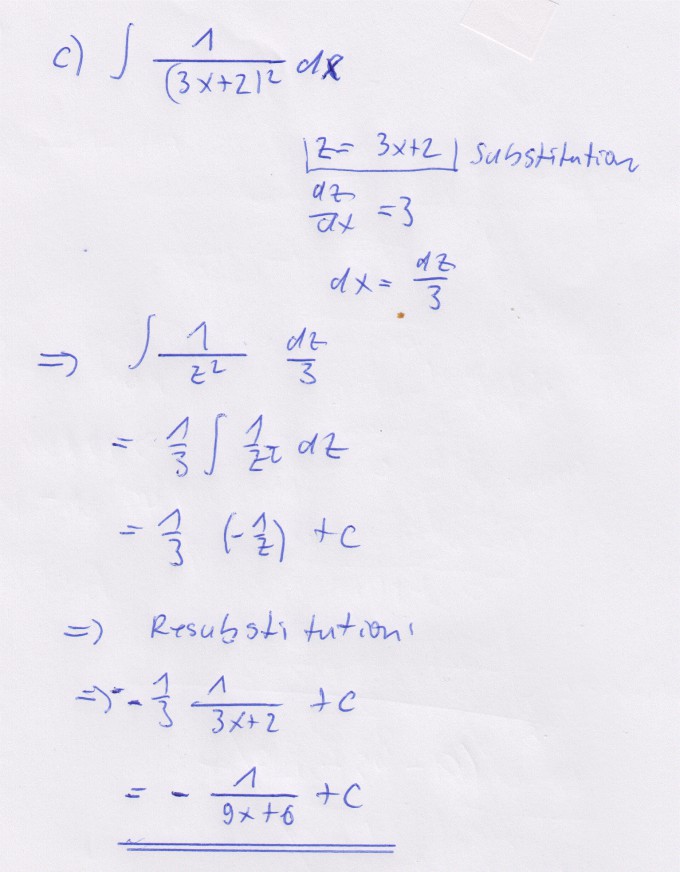 c) ∫ 1/(3x+2)² dx
|z = 3x+2| Substitution
dz/dx = 3
dx = dz/3
=> ∫ 1/z² dz/3
= 1/3 ∫ 1/z² dz
= 1/3 (-1/z) + C
=> Resubstitution:
=> - 1/3 1/(3x+2) + C
= - 1/(9x+6) + C